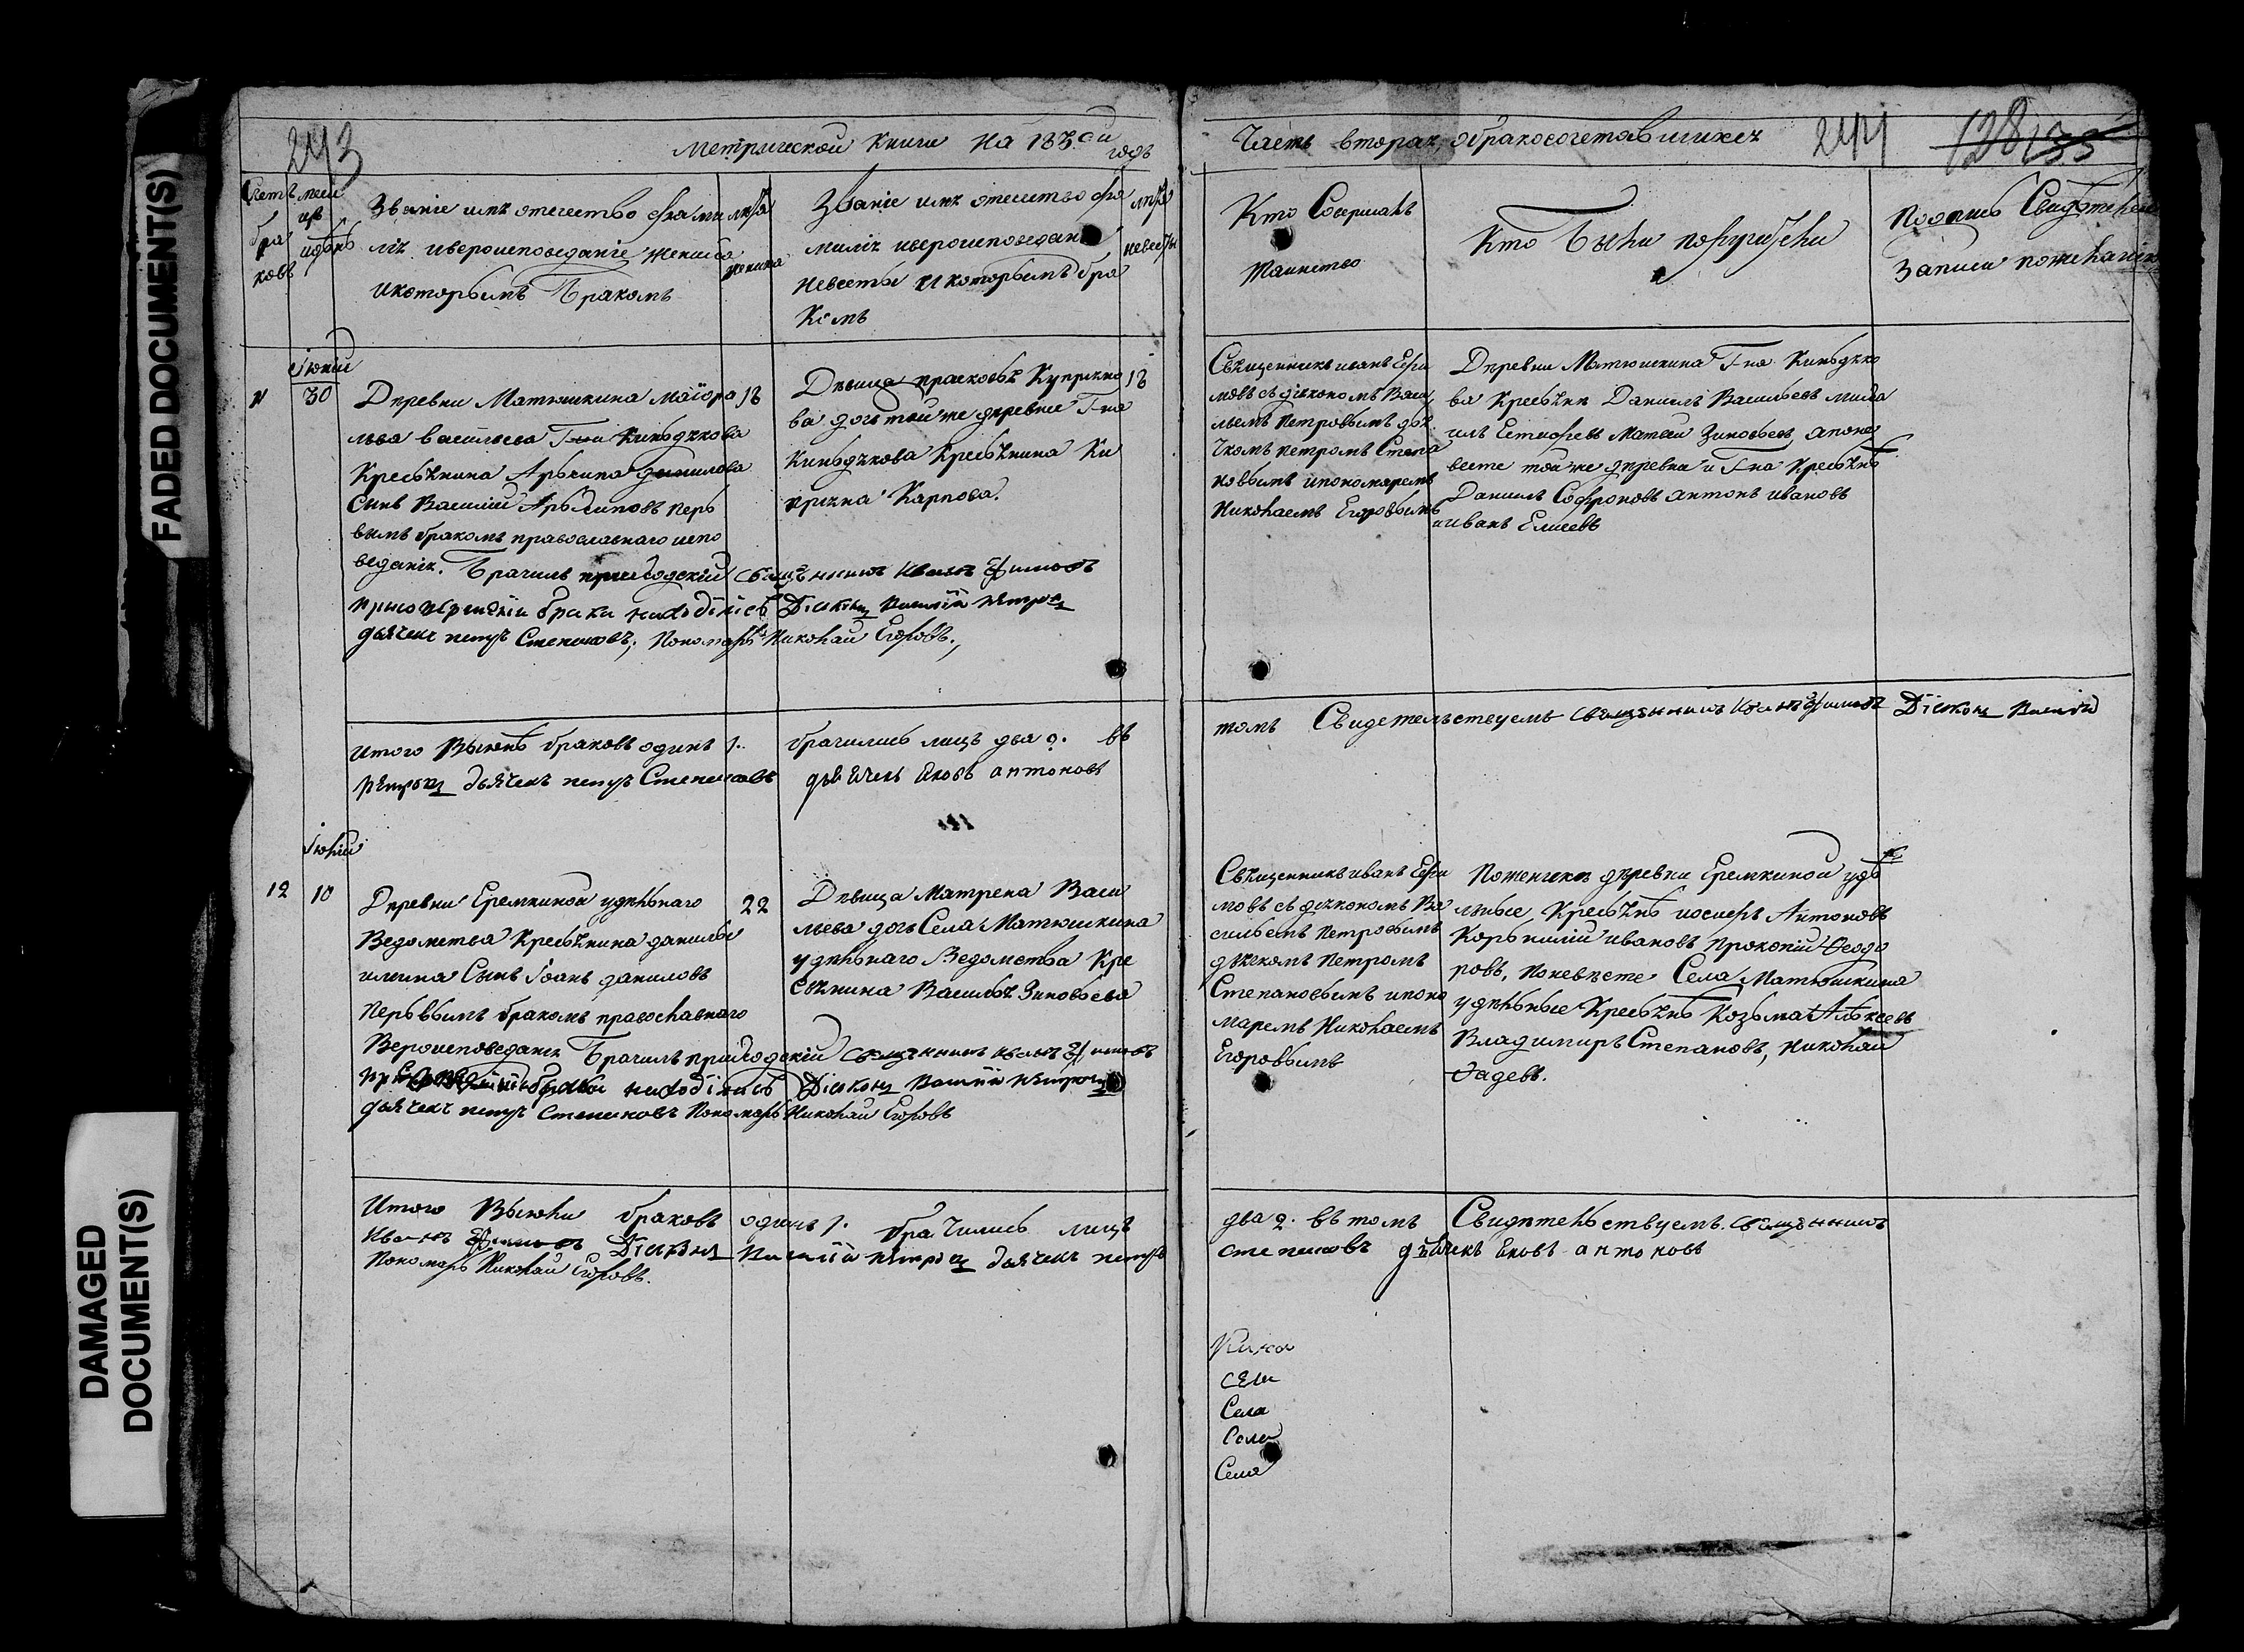 FADED DOCUMENT(S)
DAMAGED
DOCUMENT(S)
243
Метрической Книги На 183 годъ
Часть вторая, обракосочетавшихся
244
128
Счетъ браковъ
месяцъ идень
Званіе имя отечество фами
лія ивероисповеданіе жениха
икоторымъ Бракомъ
лета жениха
Званіе имя отечество фа
милія ивероисповедание
Невесты и которымъ бра
комъ
лета невесты
Кто Совершалъ
Таинство
Кто Были поручители
Подпись Свидетелей
Записи пожеланію
Іюній
30
Деревни Матюшкина маіора
льва васильева Гна Киндякова
Кресьянина Архипа
Сынъ Василий Архиповъ перь
вымъ бракомъ православнаго испо
веданія. Брачилъ приходский священникъ Иванъ Ефимовъ
присовершении брака находились Діаконъ Василій Петровъ
дьячекъ петръ Степановъ, Пономарь Николай Егоровъ.
18
Девица прасковья Куприяно
ва дочь тойже деревни Гна
Киндякова Кресьянина Ку
прияна Карпова.
18
Священникъ иванъ Ефи
мовъ съ діякономъ Васи
льемъ Петровымъ дья
чкомъ петромъ Степа
новымъ ипономаремъ
Николаемъ Егоровымъ
Деревни Матюшкина Гна Киндяко
ва Кресьяня Данилъ Васильевъ
Матвей Зиновьевъ, апоне
весте тойже деревни и Гна Кресьянѣ
Данилъ Софроновъ антонъ ивановъ
ииванъ Елисеевъ
итого Выюнѣ браковъ одинъ 1. брачились лицъ два 2. въ
томъ Свидетельствуемъ священникъ Иванъ Ефимовъ Діаконъ Василій
Петровъ дьячекъ петръ Степановъ дьячекъ Яковъ антоновъ
Іюлій
12
10
Деревни Еремкиной удѣльнаго
Ведомства Кресьянина данилы
илина Сынъ Іоанъ даниловъ
перьвымъ бракомъ православнаго
Вероисповеданія Брачилъ приходский священникъ иванъ Ефимовъ
находились Діаконъ Василій Петровъ
дьячекъ петръ Степановъ Пономарь Николай Егоровъ
22
Девица Матрена Васи
льева дочь Села Матюшкина
удѣльнаго Ведомства Кре
сьянина Василья Зиновьева
Священникъ иванъ Ефи
мовъ съ діякономъ Ва
сильемъ Петровымъ
дячкомъ Петромъ
Степановымъ ипоно
маремъ Николаемъ
Егоровымъ
Поженихѣ деревни Еремкиной удѣ
льные Кресьянѣ иосифъ Антоновъ
Корьнилий ивановъ Прокопий Феодо
ровъ, Поневѣсте Села Матюшкина
удѣльные Кресьянѣ Козьма Алексеевъ
Владимиръ Степановъ, Николай
Фадевъ.
Итого Выюли браковъ одинъ 1. брачились лицъ
два 2. въ томъ Свидѣтельствуемъ. священникъ
Иванъ Ефимовъ Діаконъ Василій Петровъ дьячекъ петръ
степановъ дьячекъ Яковъ антоновъ
Пономарь Николай Егоровъ.
Села
Села
Села